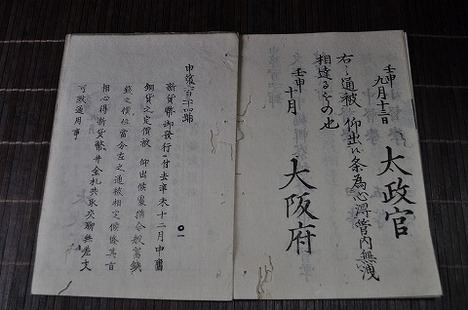 壬申
九月十三日
太政官
右之通被 仰出候条為心得管内無洩
相達るもの也
壬申
十月
大阪府
申第二百六十四号
新貨幣御發行ニ付去辛未十二月中舊
銅貨之定價被 仰出候處猶今般舊錢
錢之價位當分左之通被相定候條其旨
相心得新貨幣并金札共取交聊無差支
可致通用事